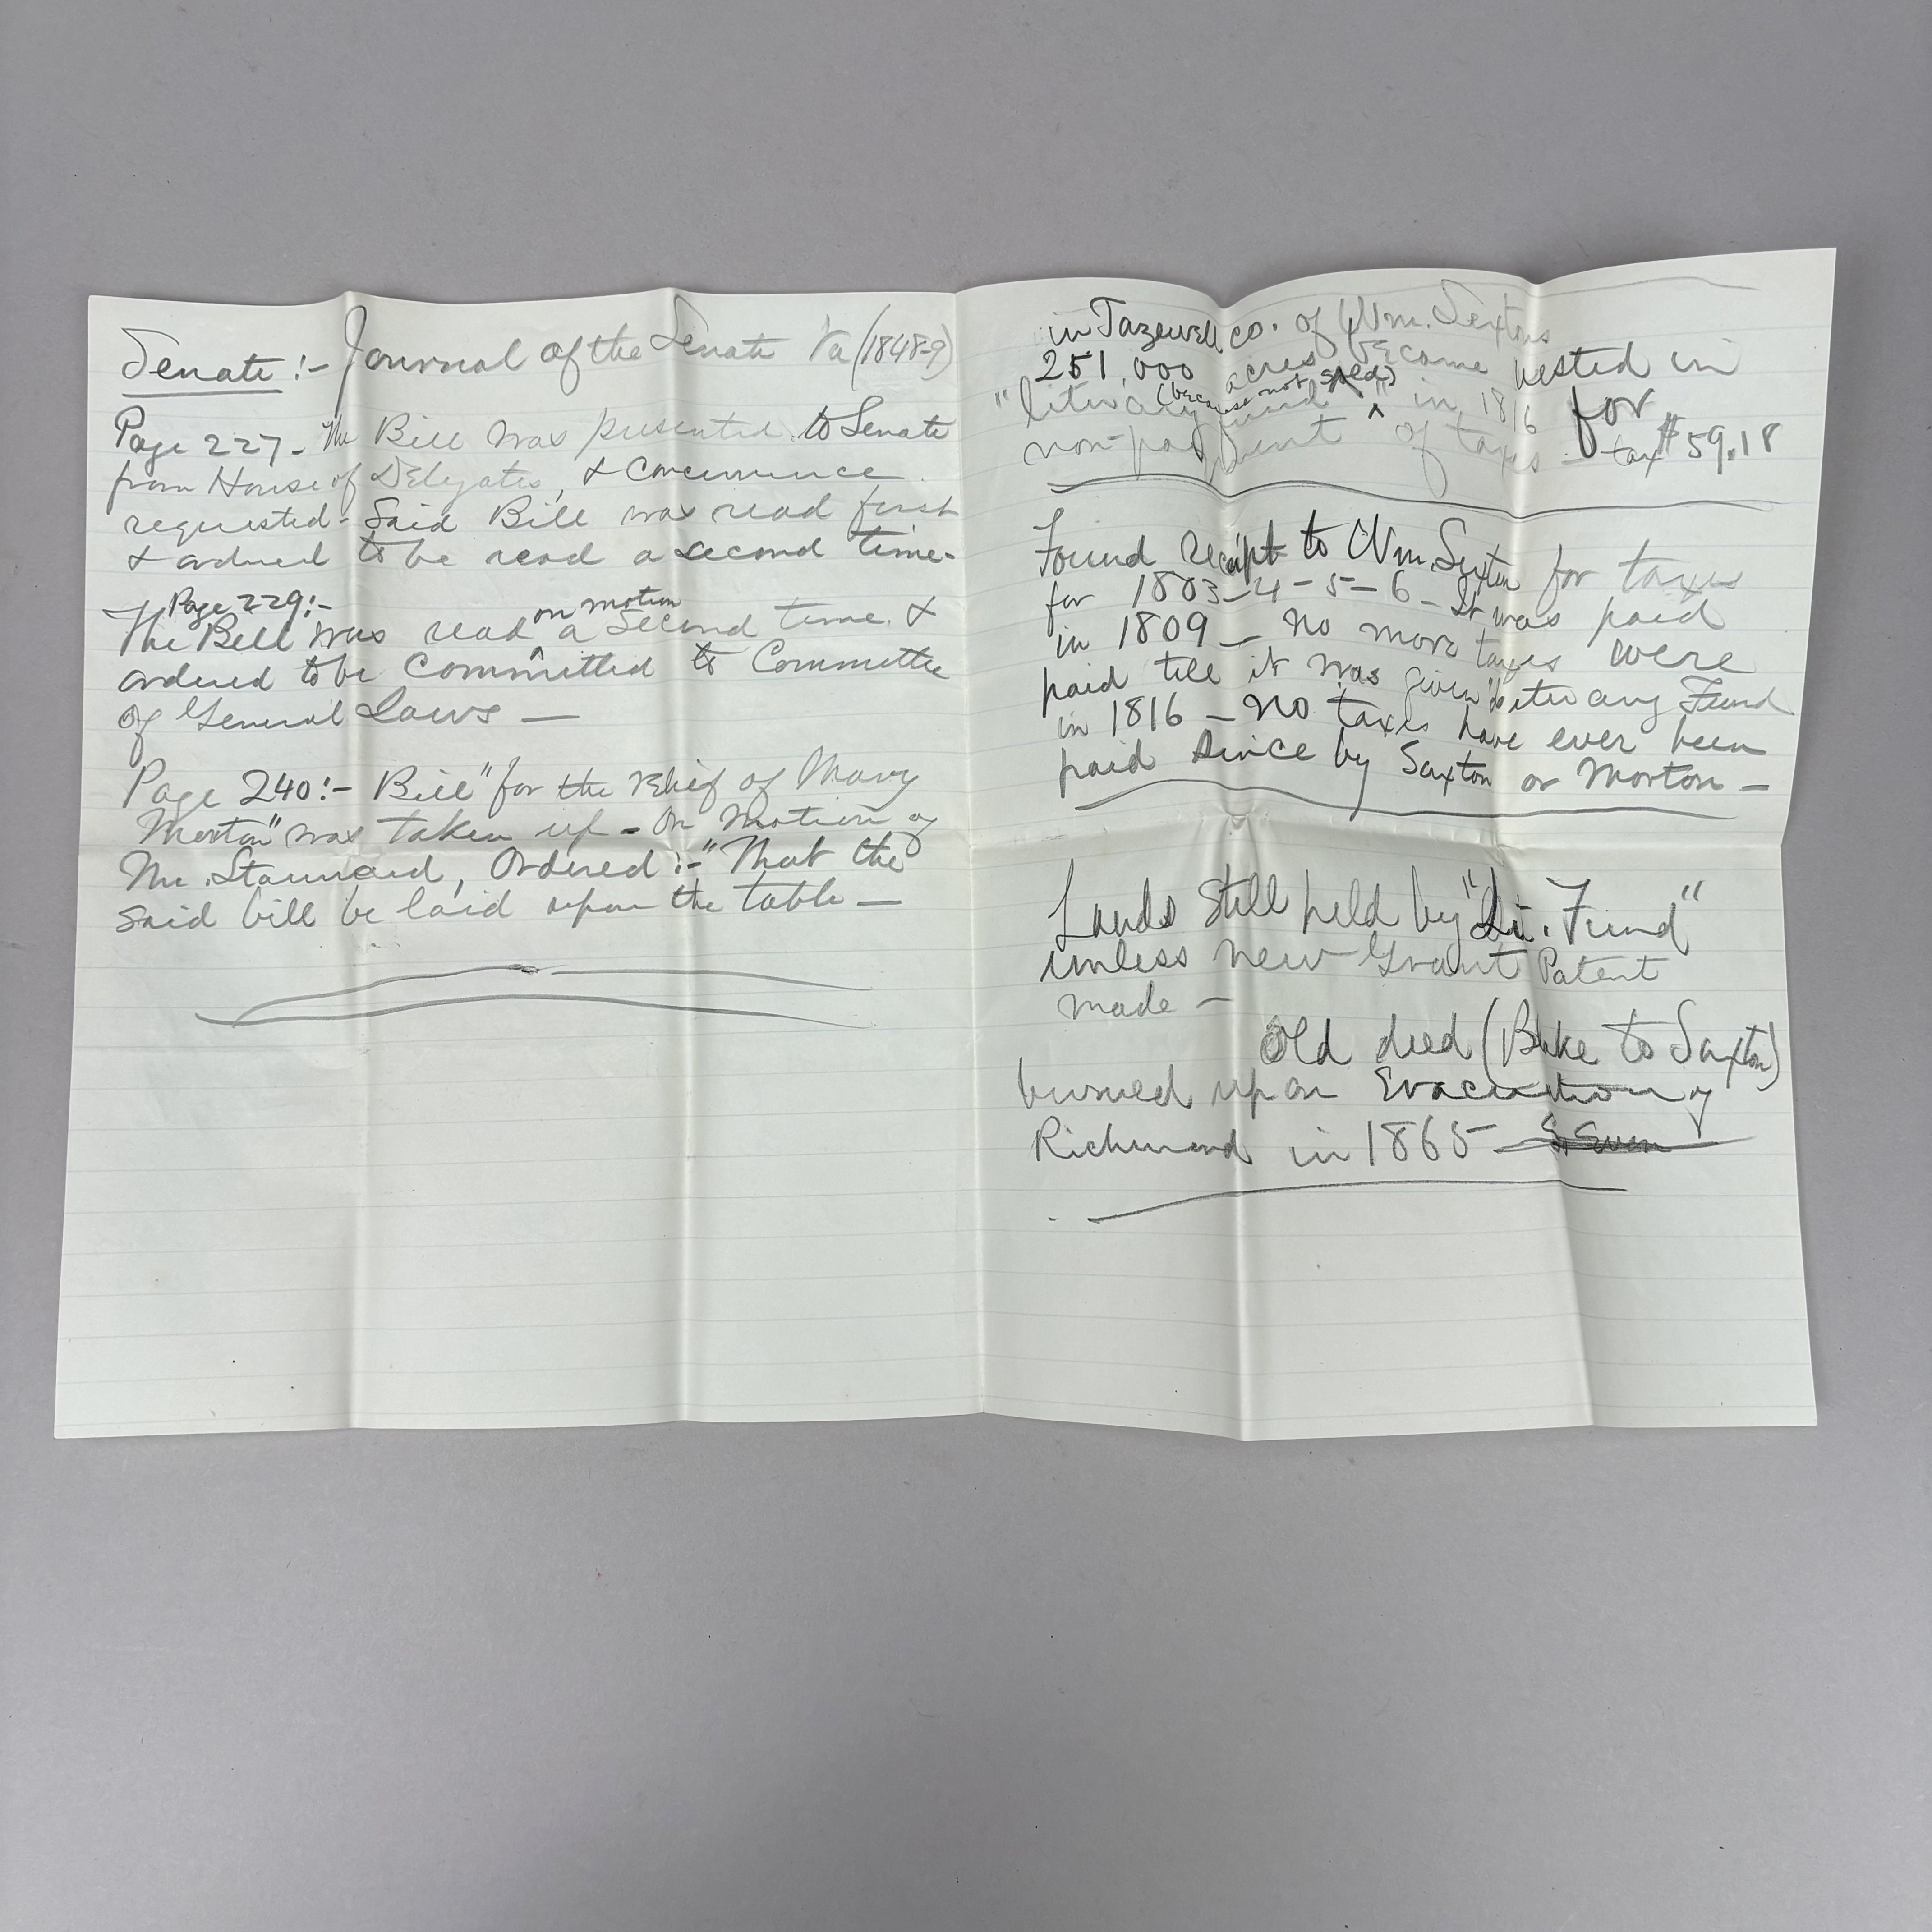 Senate:- Journal of the Senate Va (1848-9)
Page 227- The Bill was presented to Senate
from House of Delegates, & concurrence
requested- Said Bill was read first
& ordered to be read a second time-
Page 229:-
The Bill was read on motion a second time &
ordered to be committed to Committee
of General Laws —
Page 240:- Bill "for the relief of Mary
Morton" was taken up - On motion of
Mr. Stannard, Ordered:- "That the
said bill be laid upon the table —
in Tazewell co. of Wm. Sextons
251,000 acres became vested in
"literary fund" (because not sold) in 1816 for
non-payment of taxes - tax $59.18
Found receipt to Wm. Sexton for taxes
for 1803-4-5-6- It was paid
in 1809 - No more taxes were
paid till it was given to Literary Fund
in 1816 - No taxes have ever been
paid since by Saxton or Morton -
Lands still held by "Lit. Fund"
unless new Grant Patent
made -
Old deed (Bake to Saxton)
burned upon Evacuation of
Richmond in 1865-